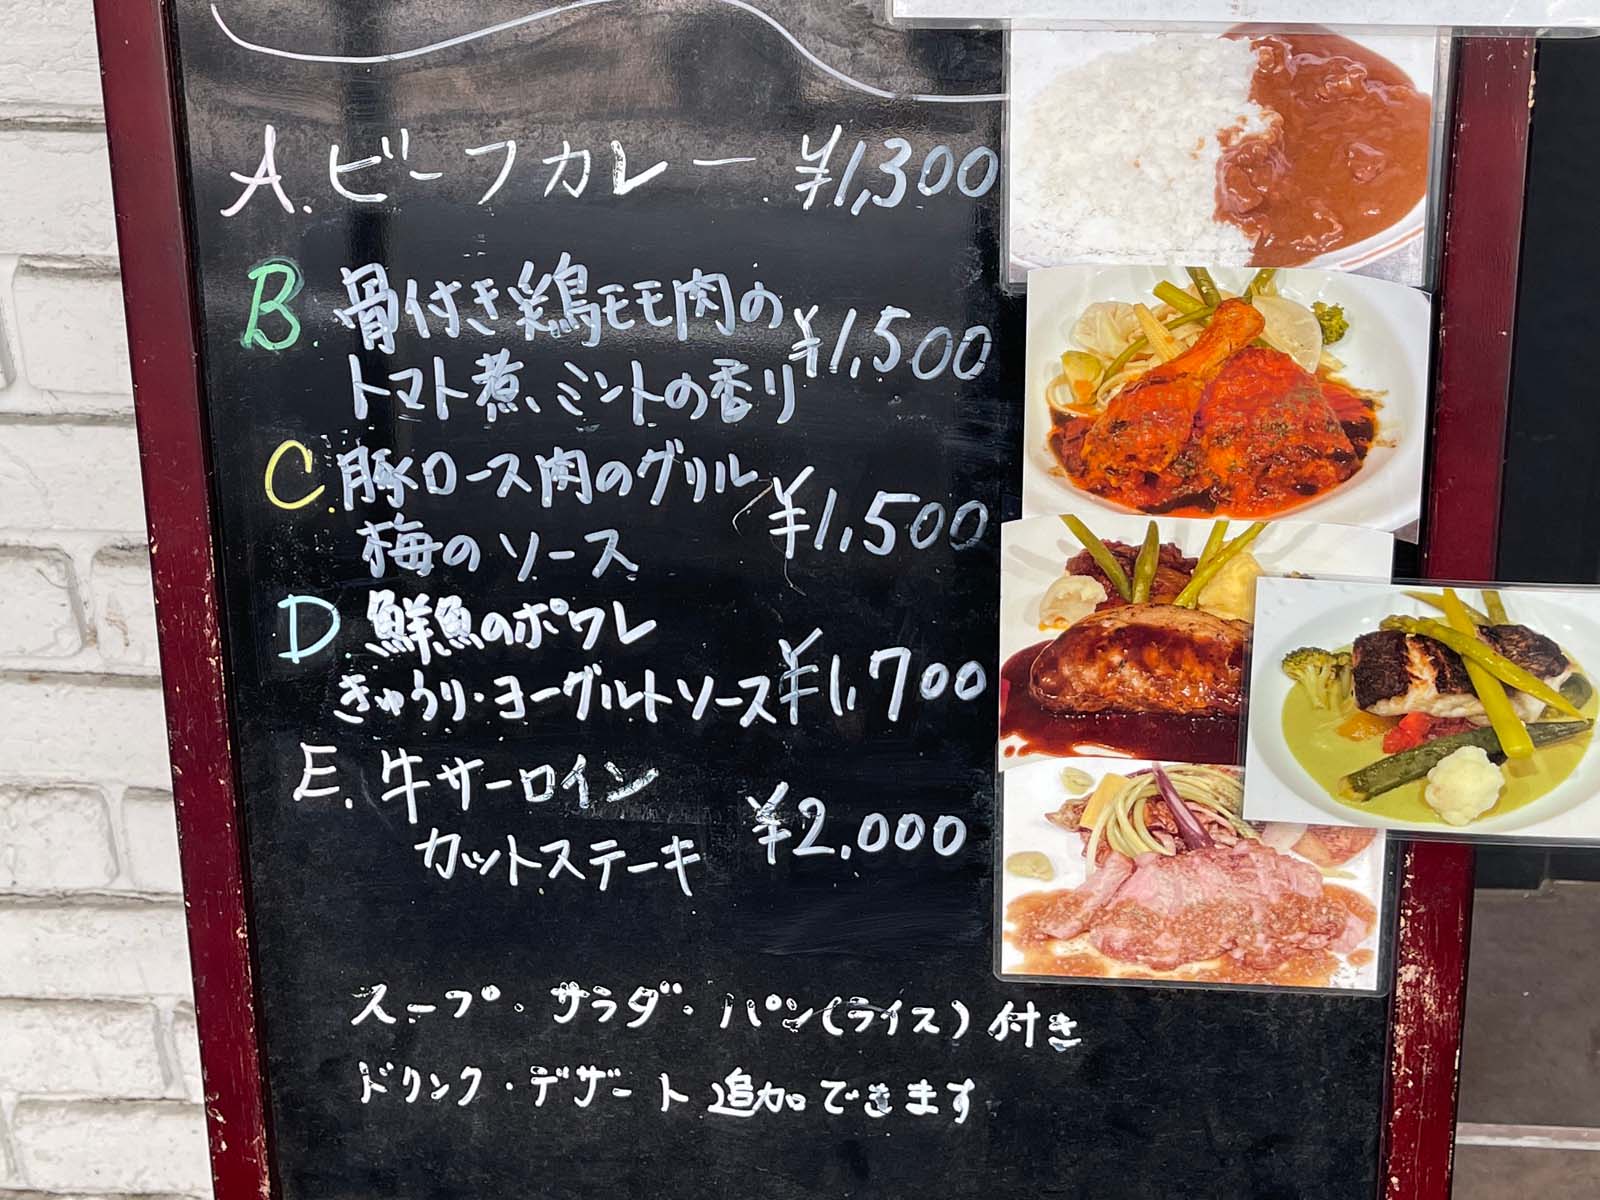 A. ビーフカレー ¥1,300
B. 骨付き鶏モモ肉の
トマト煮、ミントの香り ¥1,500
C. 豚ロース肉のグリル
梅のソース ¥1,500
D. 鮮魚のポワレ
きゅうり・ヨーグルトソース ¥1,700
E. 牛サーロイン
カットステーキ ¥2,000
スープ・サラダ・パン(ライス)付き
ドリンク・デザート追加できます